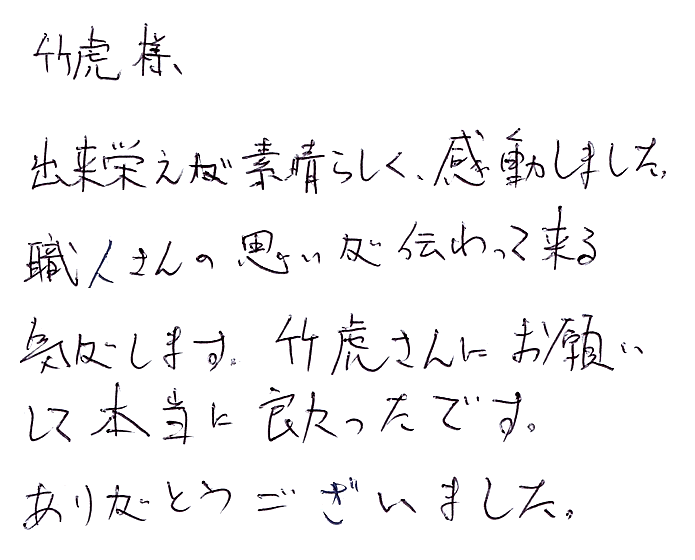 竹虎様、
出来栄えが素晴らしく、感動しました。
職人さんの思いが伝わって来る
気がします。竹虎さんにお願い
して本当に良かったです。
ありがとうございました。